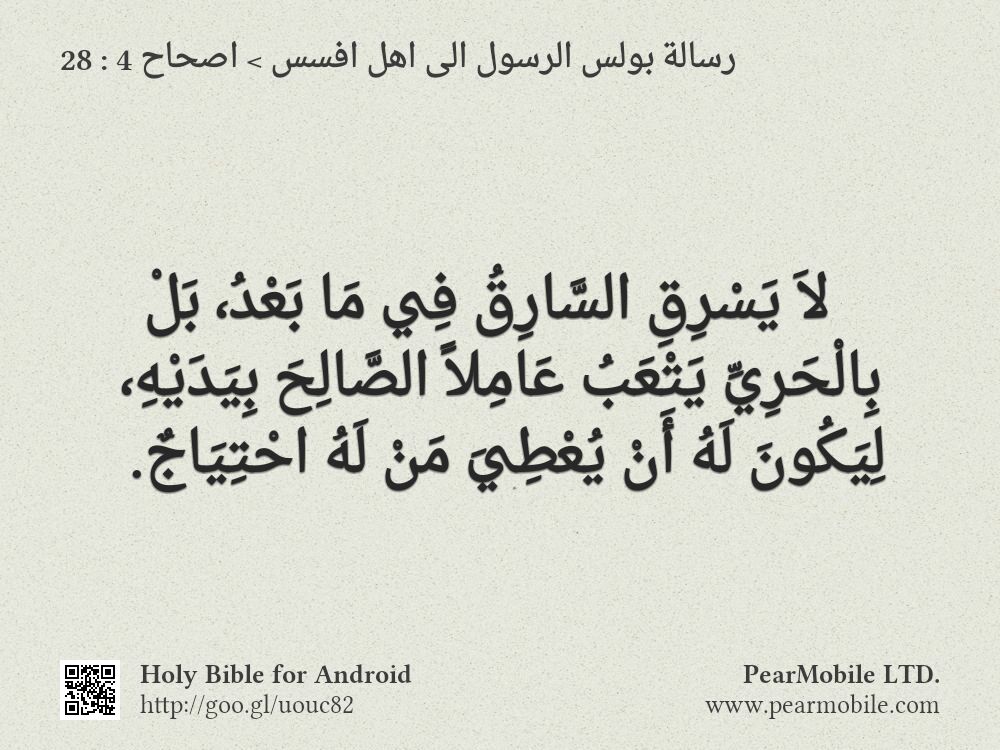 رسالة بولس الرسول الى اهل افسس > اصحاح 4 : 28
لاَ يَسْرِقِ السَّارِقُ فِي مَا بَعْدُ، بَلْ
بِالْحَرِيِّ يَتْعَبُ عَامِلاً الصَّالِحَ بِيَدَيْهِ،
لِيَكُونَ لَهُ أَنْ يُعْطِيَ مَنْ لَهُ احْتِيَاجٌ.
Holy Bible for Android
http://goo.gl/uouc82
PearMobile LTD.
www.pearmobile.com